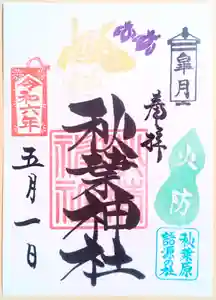 皐月
奉拝
火防
秋葉神社
秋葉原
語源の社
令和六年
五月一日